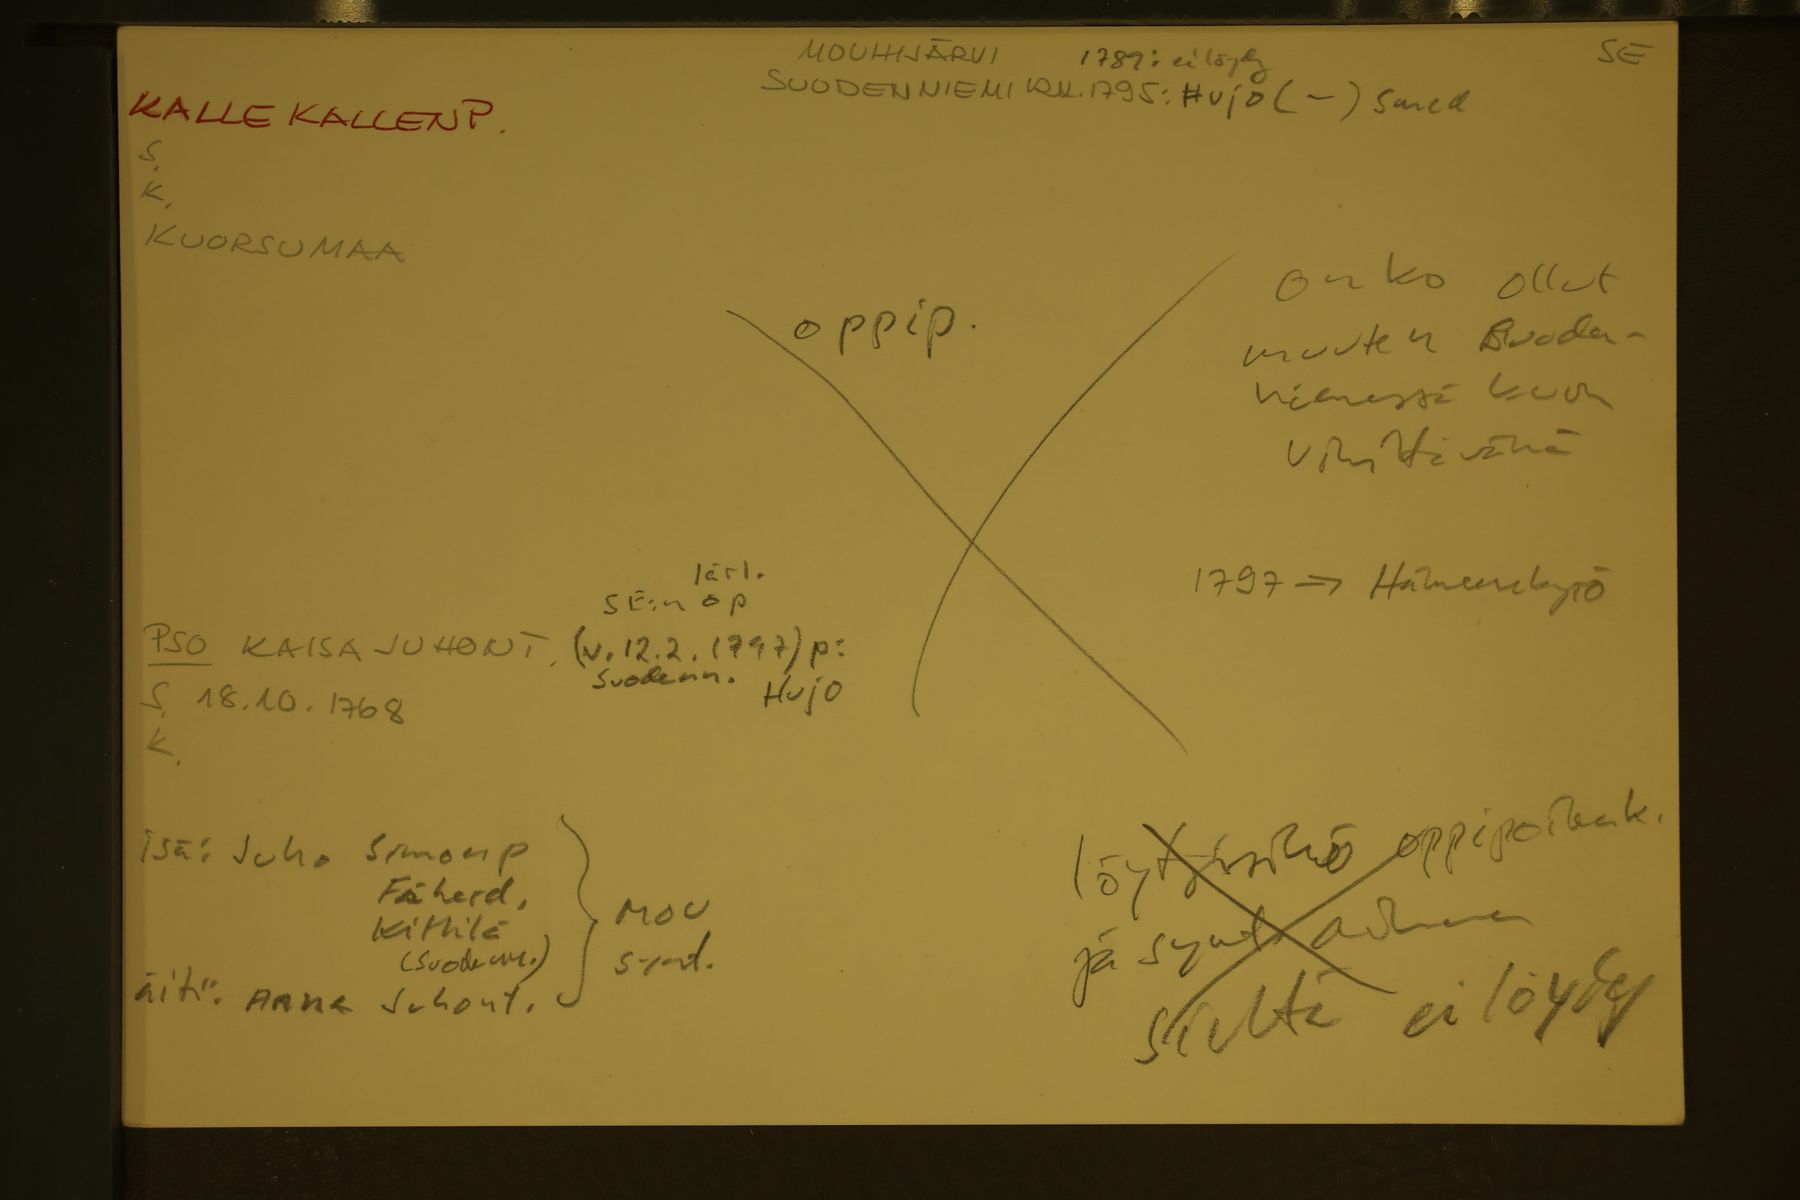 MOUHIJÄRVI 1789: ei löydy SE
SUODENNIEMI RK. 1795: Hujo (-) smed
KALLE KALLENP.
S.
K.
KUORSUMAA
oppip.
onko ollut
muuten Suoden-
niemessä kuin
vihittävänä
1797 → Hämeenkyrö
lärl.
SE:n op
PSO KAISA JUHONT. (v. 12.2. 1797) p:
Suodenn. Hujo
S. 18.10. 1768
K.
isä: Juho Simonp
Fäherd.
Kittilä
(Suodenn.)
äiti: Anna Juhont.
MOU
synt.
löytyisikö oppipoikak.
ja synt. aikanen
sieltä ei löydy